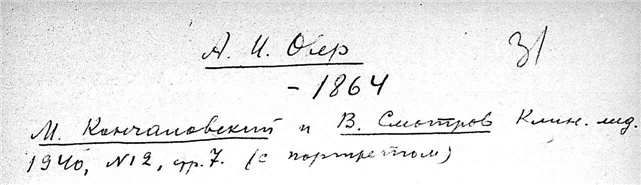 А. И. Овер 31
- 1864
М. Кончаловский и В. Смотров Клин. мед.
1940, №12, стр. 7. (с портретом)